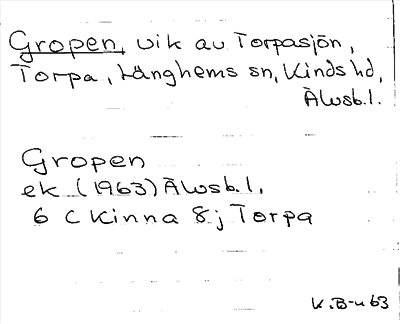 Gropen, vik av Torpasjön,
Torpa, Länghems sn, Kinds hd,
Älvsb. l.
Gropen
ek (1963) Älvsb. l.
6 C Kinna 8j Torpa
K.B-u 63